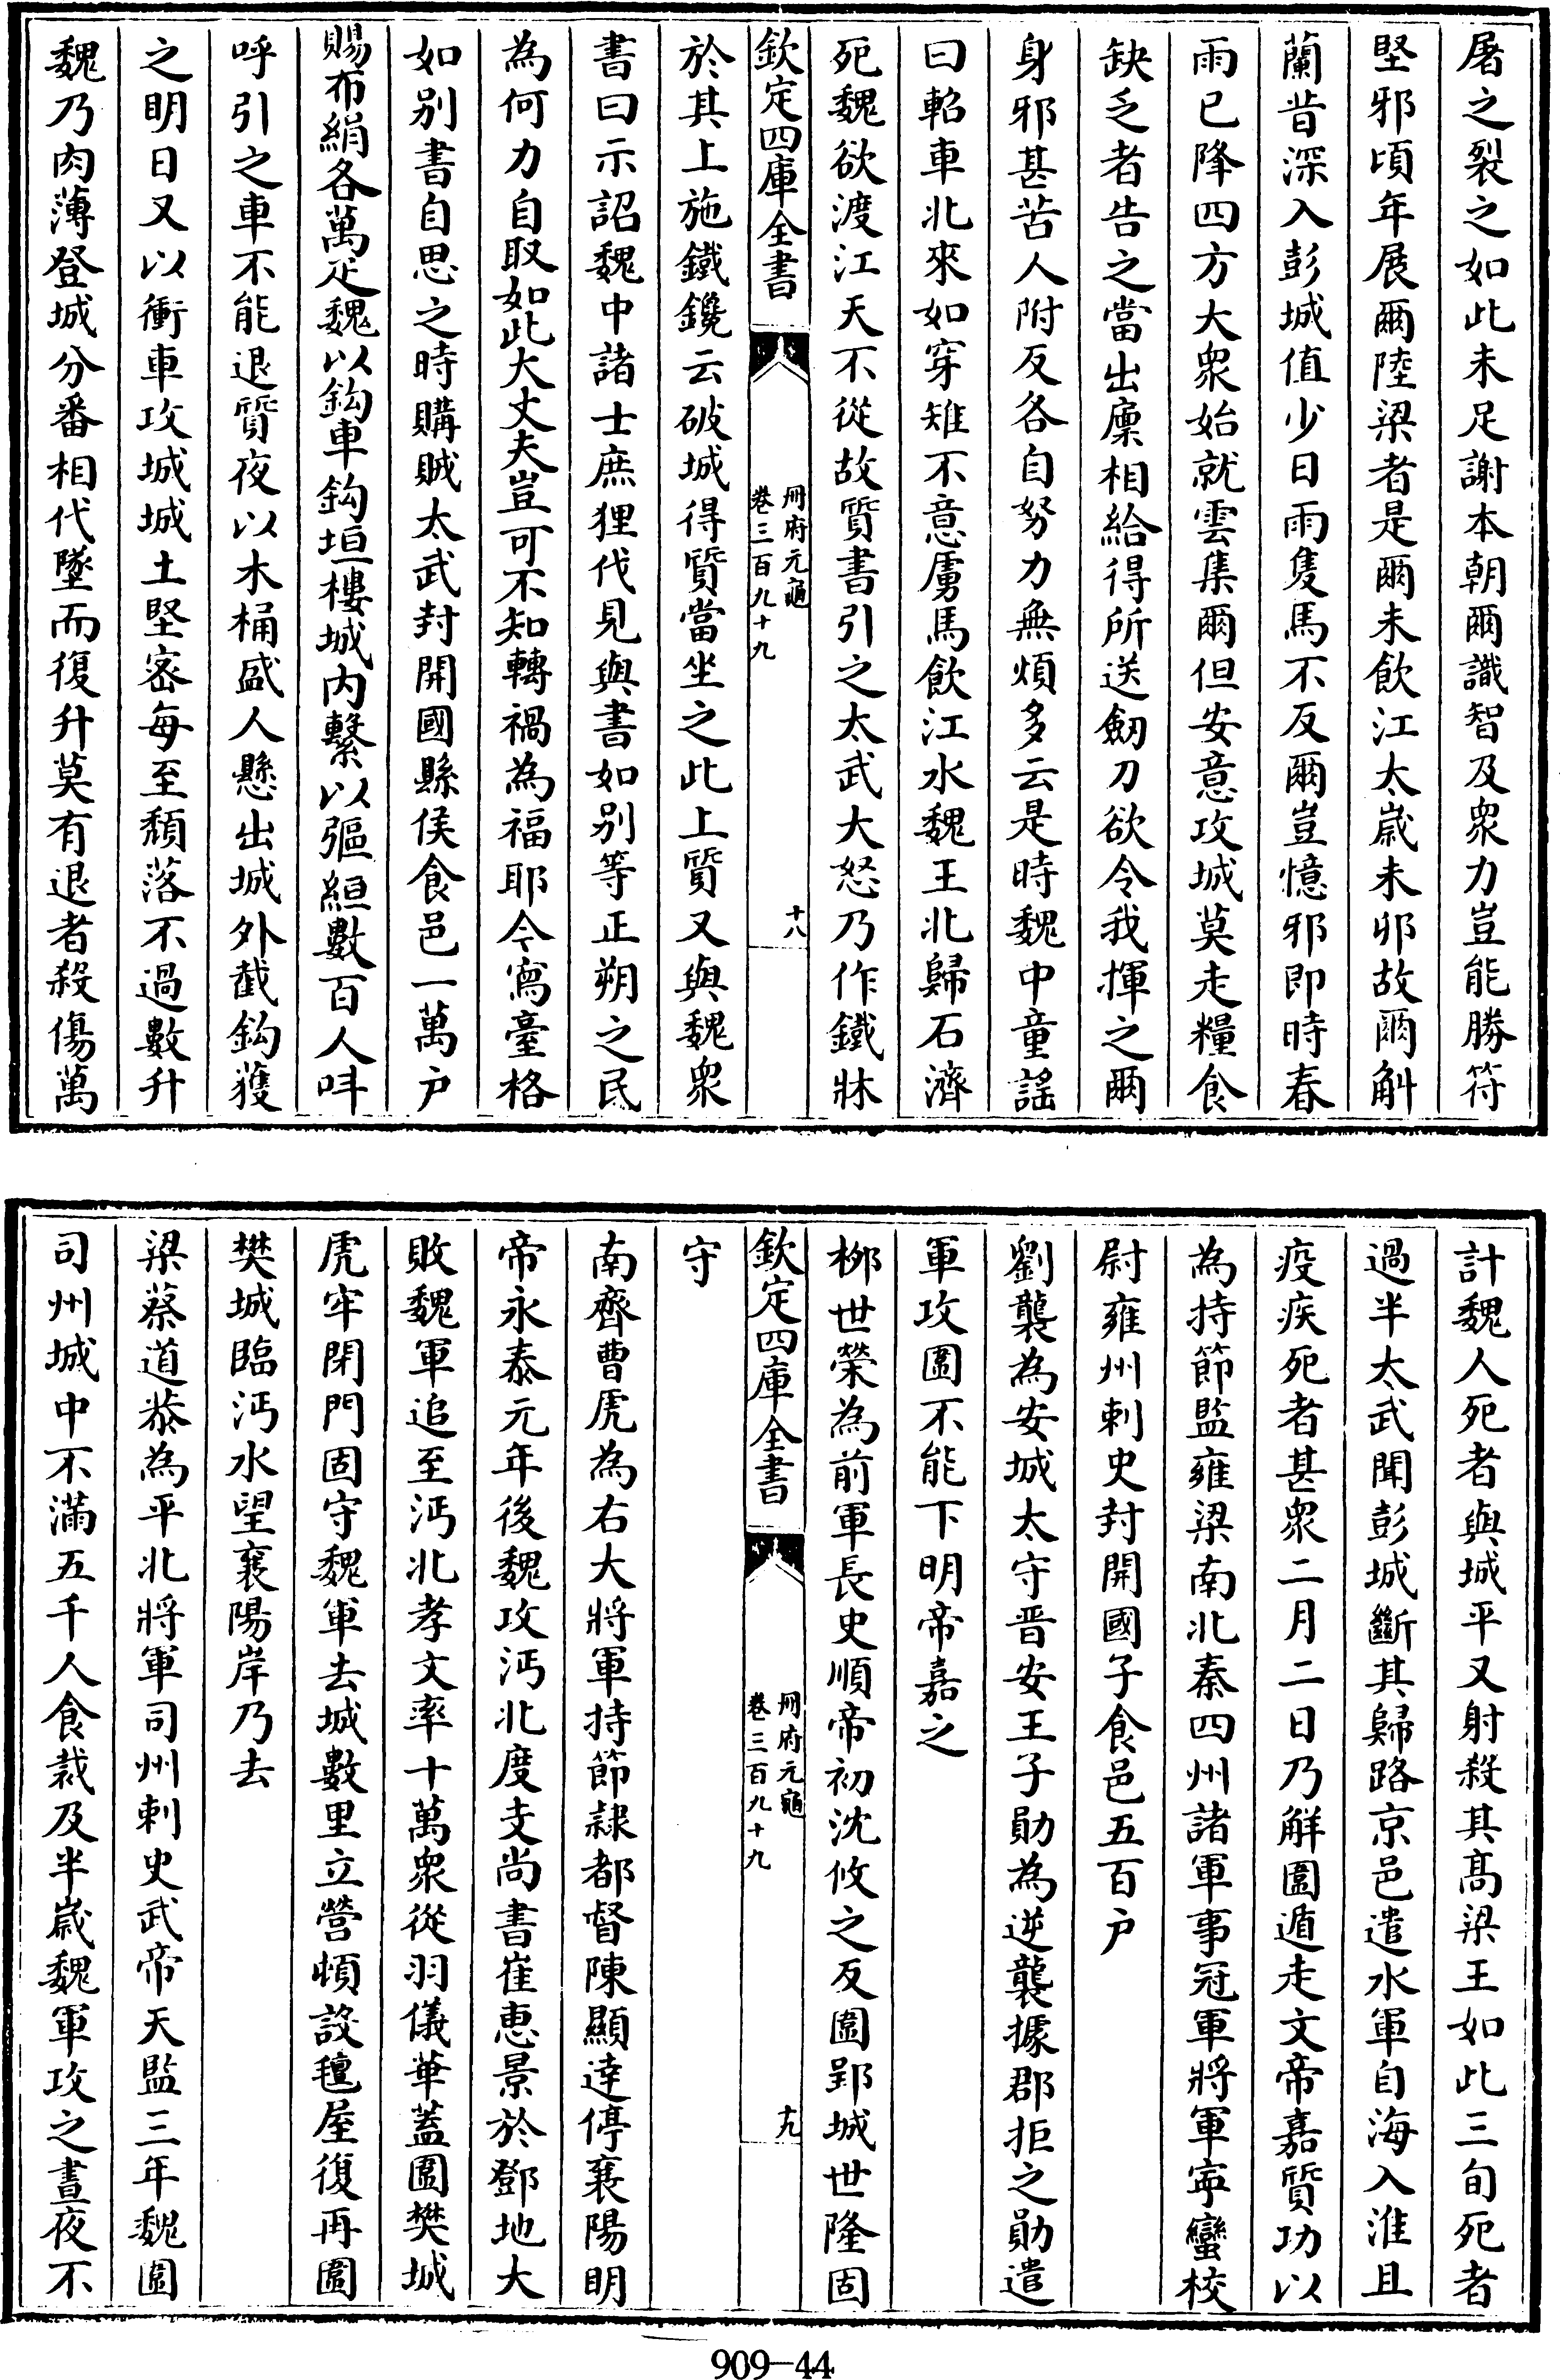 屠之裂之如此未足謝本朝爾識智及衆力豈能勝符
堅邪頃年展爾陸梁者是爾未飲江太歲未卯故爾斛
蘭昔深入彭城值少日雨隻馬不反爾豈憶邪即時春
雨已降四方大衆始就雲集爾但安意攻城莫走糧食
缺乏者告之當出廪相給得所送劒刀欲令我揮之爾
身邪甚苦人附反各自努力無煩多云是時魏中童謡
曰軺車北來如穿雉不意虜馬飲江水魏王北歸石濟
死魏欲渡江天不從故質書引之太武大怒乃作鐵牀
欽定四庫全書
冊府元龜
卷三百九十九
十八
於其上施鐵鑱云破城得質當坐之此上質又與魏衆
書曰示詔魏中諸士庶狸代見與書如别等正朔之民
為何力自取如此大丈夫豈可不知轉禍為福耶今寫臺格
如别書自思之時購賊太武封開國縣侯食邑一萬户
賜布絹各萬疋魏以鈎車鈎垣樓城内繫以彄絙數百人呌
呼引之車不能退質夜以木桶盛人懸出城外截鈎獲
之明日又以衝車攻城城土堅密每至頽落不過數升
魏乃肉薄登城分番相代墜而復升莫有退者殺傷萬
計魏人死者與城平又射殺其髙梁王如此三旬死者
過半太武聞彭城斷其歸路京邑遣水軍自海入淮且
疫疾死者甚衆二月二日乃解圍遁走文帝嘉質功以
為持節監雍梁南北秦四州諸軍事冠軍將軍寜蠻校
尉雍州刺史封開國子食邑五百户
劉襲為安城太守晋安王子勛為逆襲據郡拒之勛遣
軍攻圍不能下明帝嘉之
栁世榮為前軍長史順帝初沈攸之反圍郢城世隆固
欽定四庫全書
冊府元龜
卷三百九十九
十九
守
南齊曹虎為右大將軍持節隷都督陳顯逹停襄陽明
帝永泰元年後魏攻沔北度支尚書崔惠景於鄧地大
敗魏軍追至沔北孝文率十萬衆從羽儀華蓋圍樊城
虎牢閉門固守魏軍去城數里立營頓設氊屋復再圍
樊城臨沔水望襄陽岸乃去
梁蔡道㳟為平北將軍司州刺史武帝天監三年魏圍
司州城中不滿五千人食裁及半歲魏軍攻之晝夜不
909-44